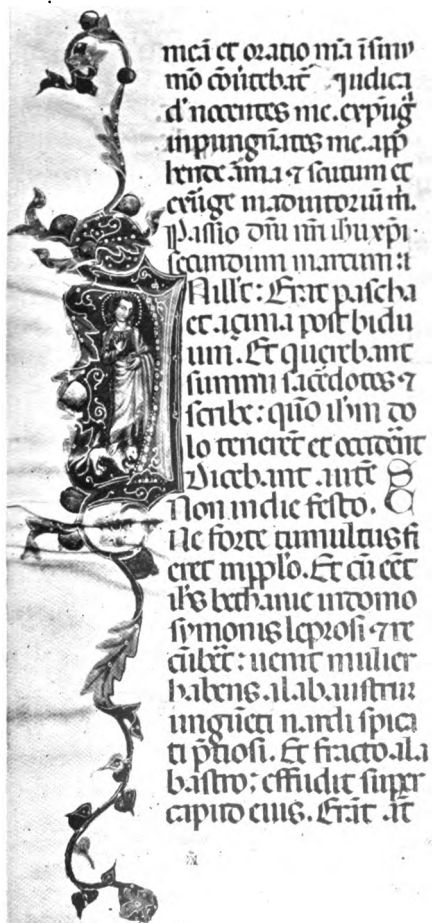 meā et oratio mīa ī sinu
mō cōūtebat᷑ Iudica
d᷑ nocentes me. expug᷑
inpungnātes me. app̄
hende arma ⁊ scutum et
exūge in adiutoriū m̄.
Passio dn̄i nr̄i ihū xp̄i
secundum marcum: i
N ill᷑ t̄: Erat pascha
et açima post bidu
um. Et querebant
summi sacerdotes ⁊
scribe: quō ihm̄ do
lo tenerēt et occidēnt
Dicebant autē S
Non in die festo. C
Ne forte tumultus fi
eret in pp̄lo. Et cū eēt
ihs̄ bethanie in domo
symonis leprosi ⁊ re
cūbēt: uenit mulier
habens alabaustrū
unguēti nardi spica
ti p̄tiosi. Et fracto ala
bastro: effudit super
capito eius. Erāt āt